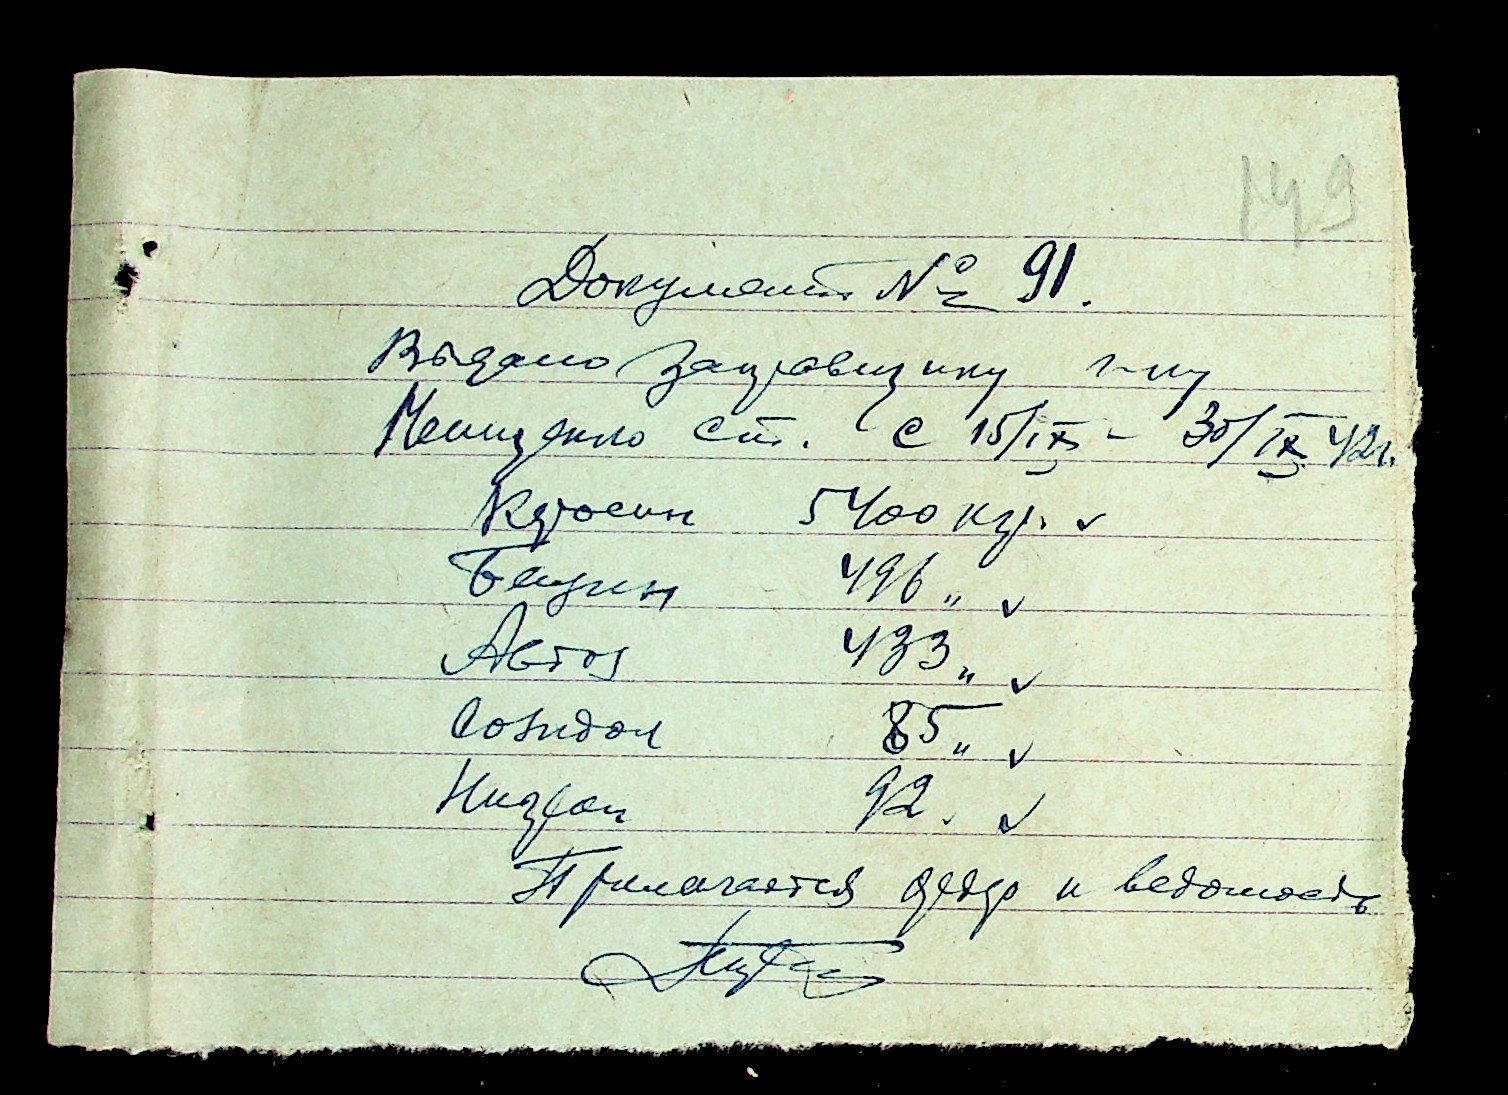 149
Документ № 91.
Выдано Заправщику г-ну
Мешченко ст. с 15/IX - 30/IX 42г.
Керосин 5400 кгр. ✓
Бензин 496 „ ✓
Автол 433 „ ✓
Солидол 85 „ ✓
Нигрол 92. ✓
Прилагается и ведомость